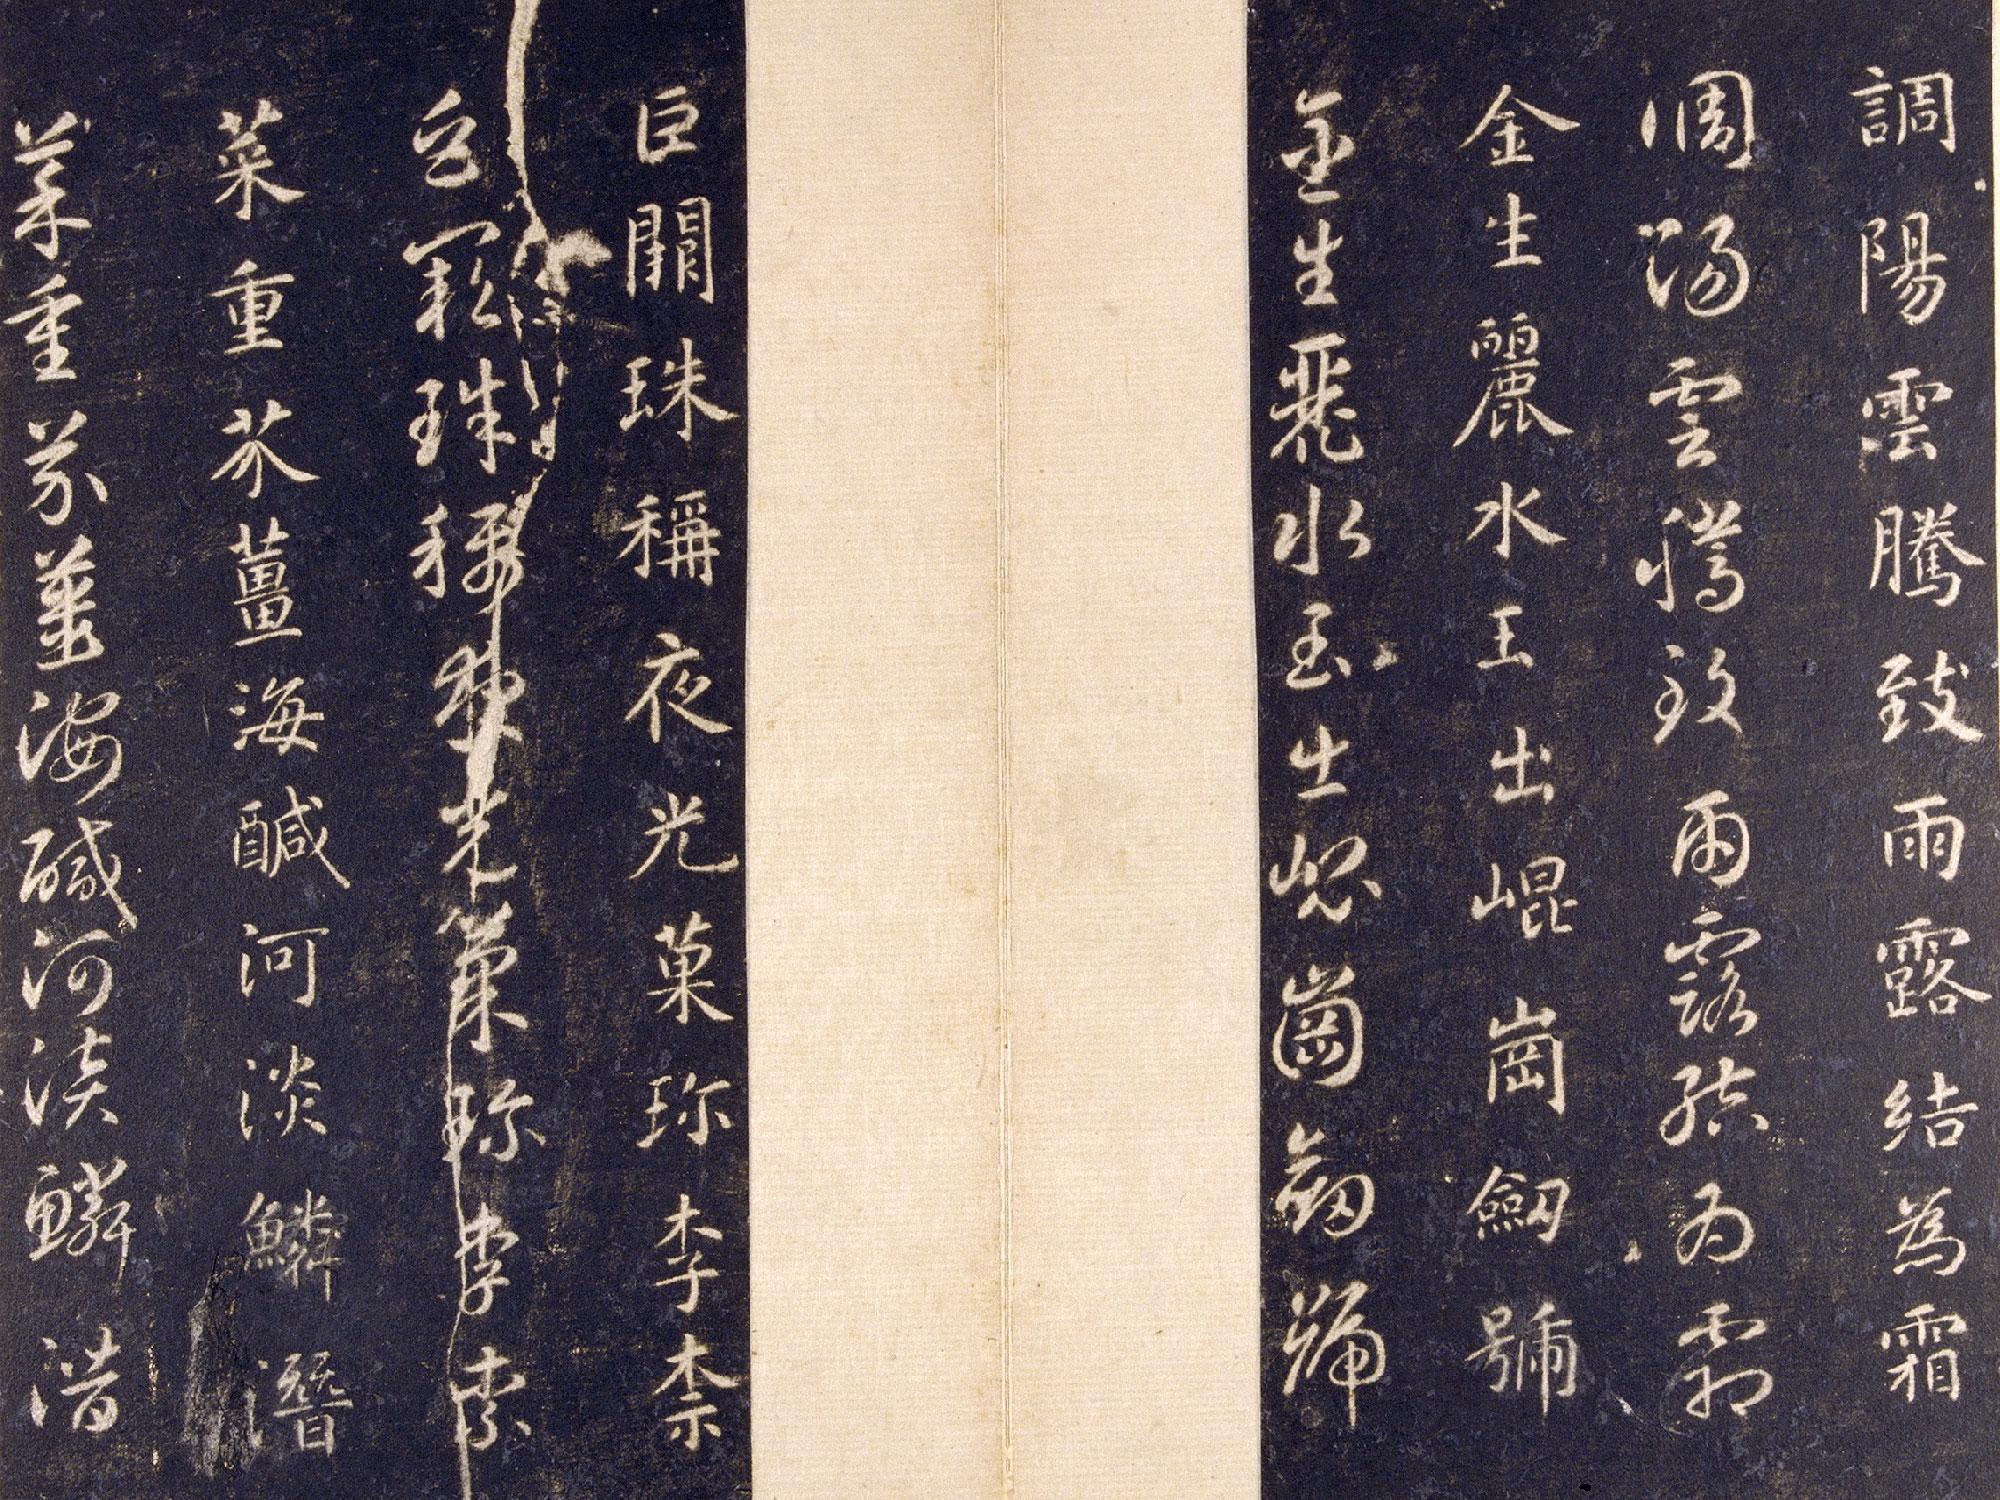 調陽雲騰致雨露結為霜
調陽雲騰致雨露結為霜
金生麗水玉出崐崗劔號
金生麗水玉出崐崗劔號
巨闕珠稱夜光菓珎李柰
巨闕珠稱夜光菓珎李柰
菜重芥薑海鹹河淡鱗潛
菜重芥薑海鹹河淡鱗潛